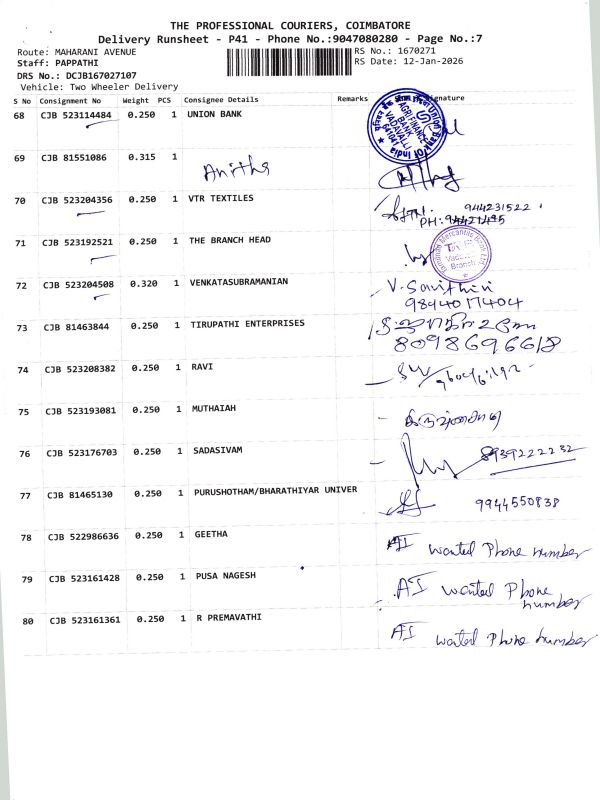 THE PROFESSIONAL COURIERS, COIMBATORE
Delivery Runsheet - P41 - Phone No.:9047080280 - Page No.:7
Route: MAHARANI AVENUE
RS No.: 1670271
Staff: PAPPATHI
RS Date: 12-Jan-2026
DRS No.: DCJB167027107
Vehicle: Two Wheeler Delivery
S No Consignment No Weight PCS Consignee Details Remarks Signature
68 CJB 523114484 0.250 1 UNION BANK
Union Bank Of India
AGRI FINANCE
BANK
VADAVALLI
641041
69 CJB 81551086 0.315 1
Anitha
70 CJB 523204356 0.250 1 VTR TEXTILES
944231522
PH:
71 CJB 523192521 0.250 1 THE BRANCH HEAD
Mercantile Bank Ltd
Branch
72 CJB 523204508 0.320 1 VENKATASUBRAMANIAN V. Savithiri
9894017404
73 CJB 81463844 0.250 1 TIRUPATHI ENTERPRISES
8098696618
74 CJB 523208382 0.250 1 RAVI
75 CJB 523193081 0.250 1 MUTHAIAH
76 CJB 523176703 0.250 1 SADASIVAM 8939222232
77 CJB 81465130 0.250 1 PURUSHOTHAM/BHARATHIYAR UNIVER 9944550838
78 CJB 522986636 0.250 1 GEETHA AI wanted Phone number
79 CJB 523161428 0.250 1 PUSA NAGESH AI wanted Phone
number
80 CJB 523161361 0.250 1 R PREMAVATHI AI wanted Phone number